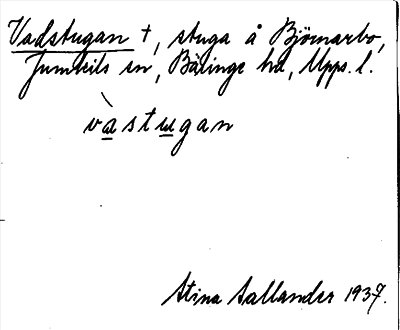 Vadstugan †, stuga å Björnarbo,
Jumkils sn, Bälinge hd, Upps. l.
vàstugan
Stina Sallander 1937.